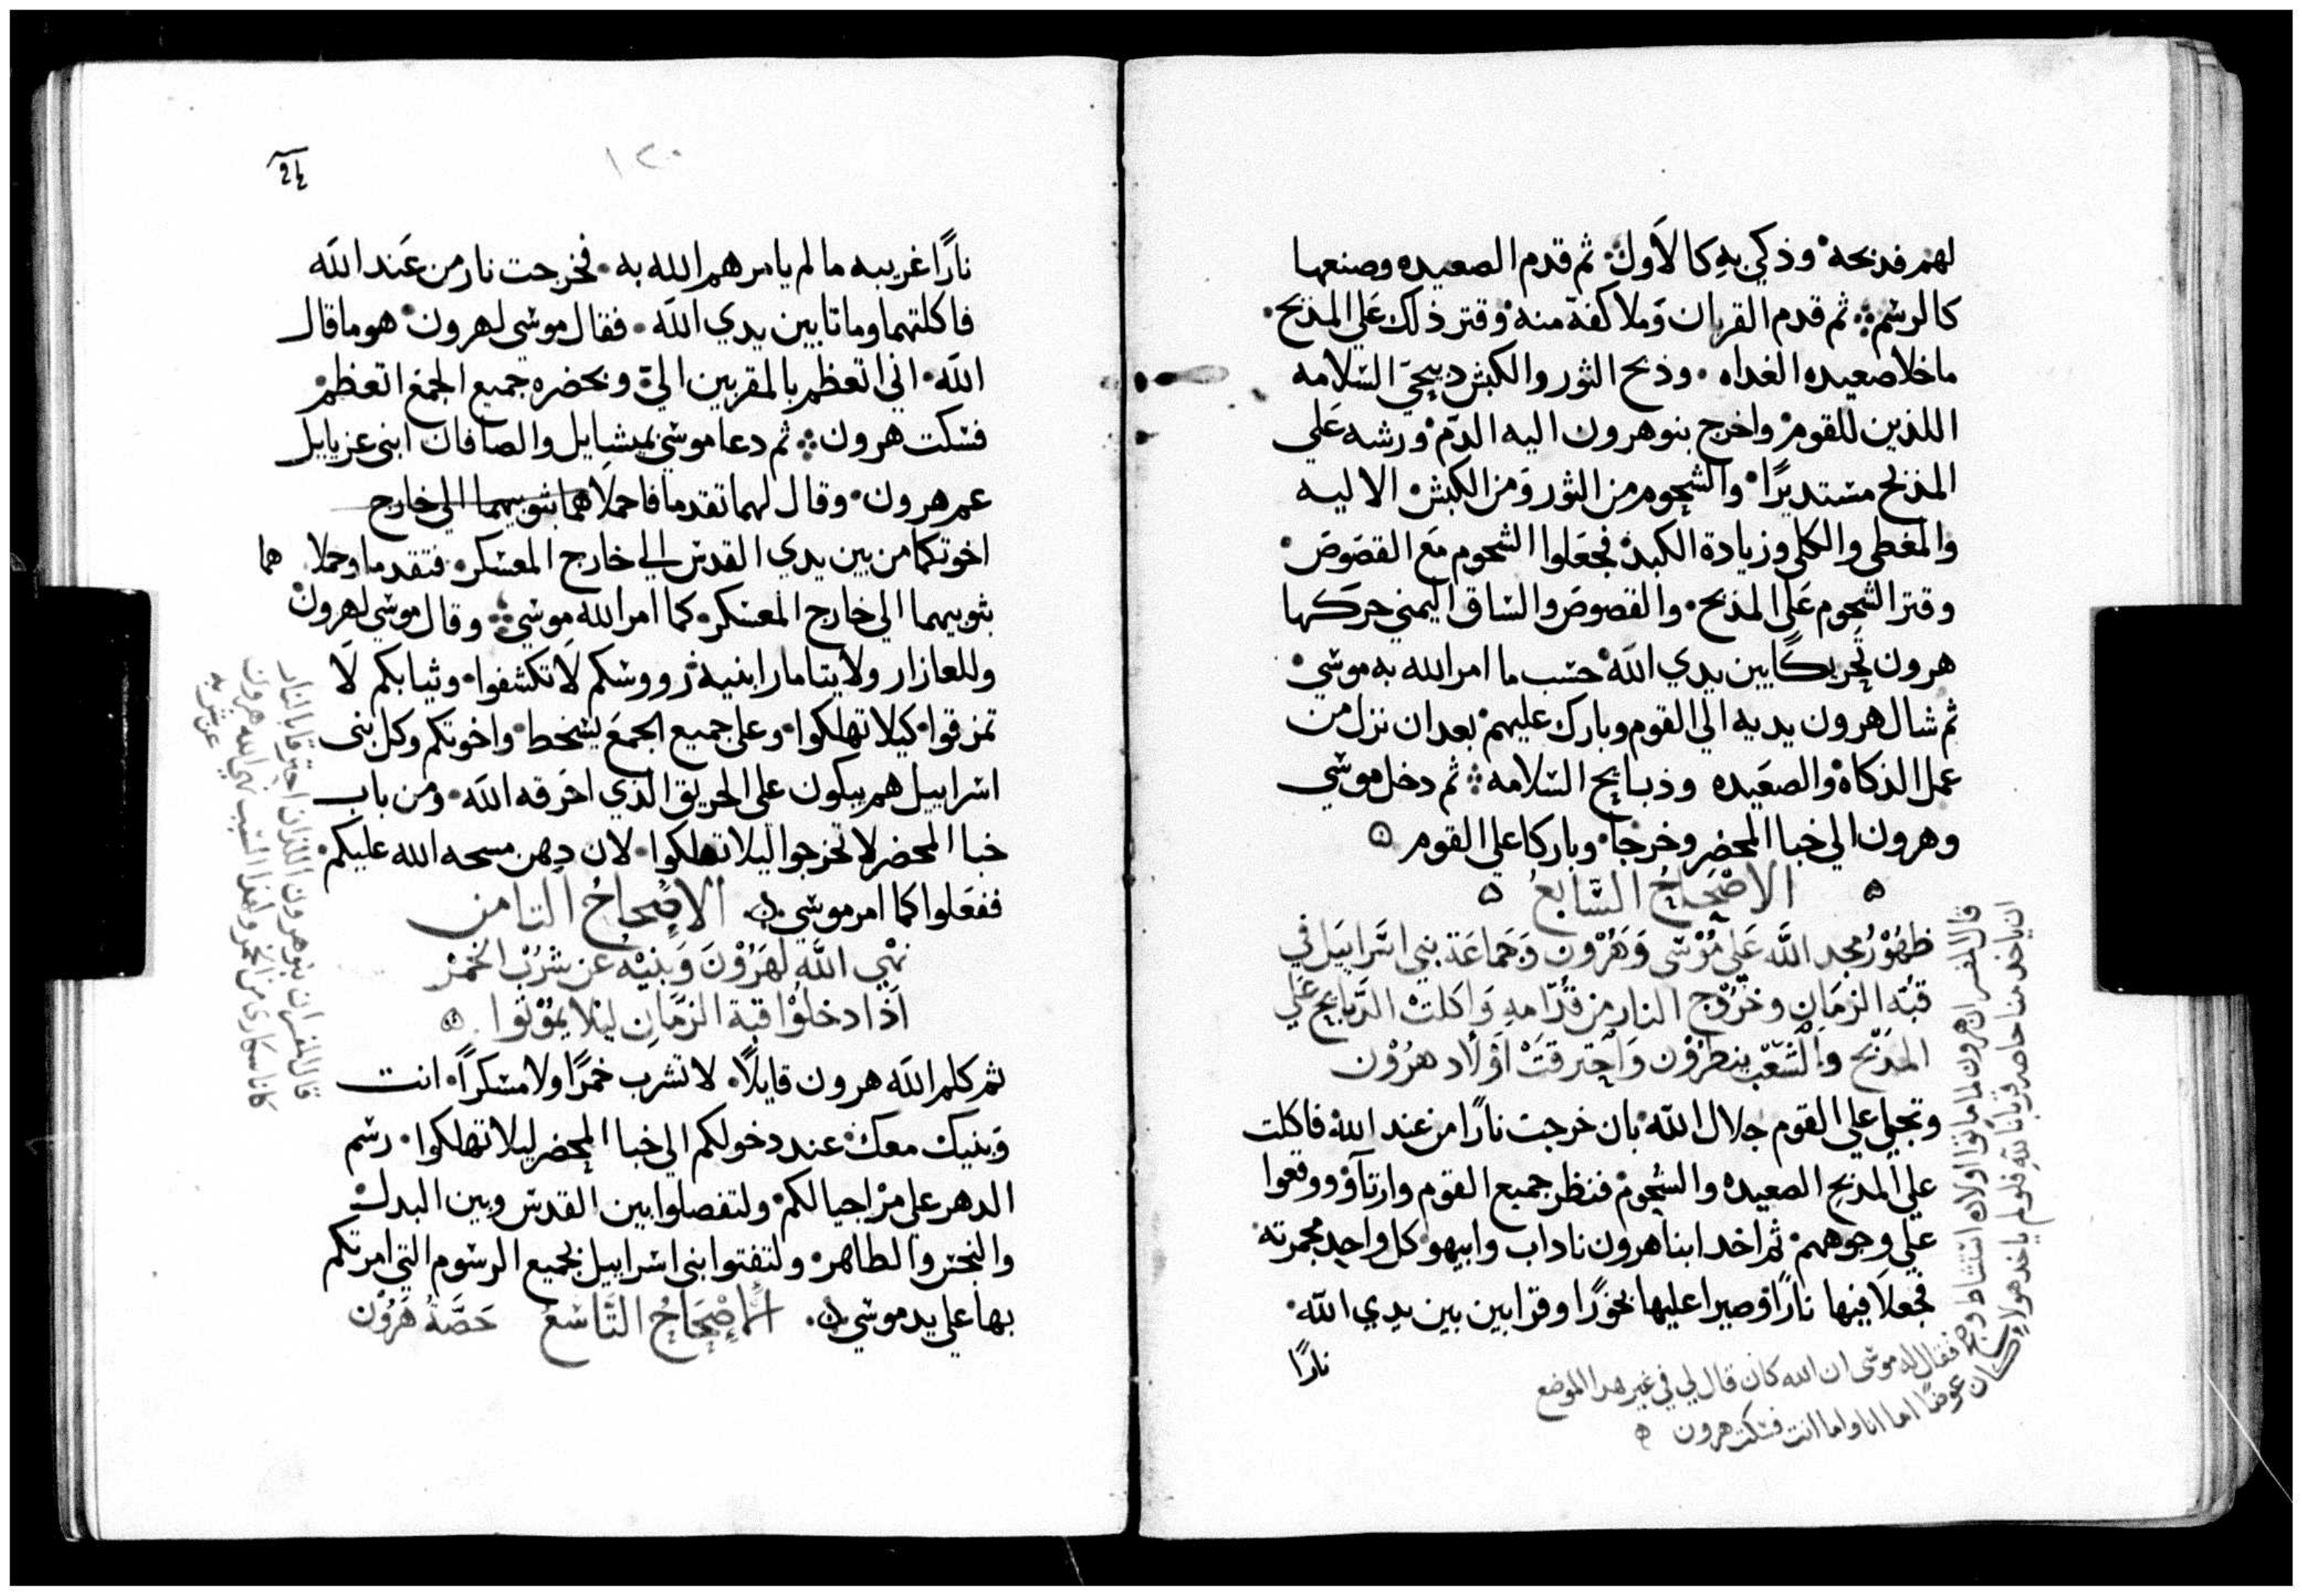 لهم فذبحه وذكي به كالاول ثم قدم الصعيده وصنعها
كالرشم ثم قدم القربان وملا كفه منه وقتر ذلك علي المذبح
ما خلا صعيده الغداه وذبح الثور والكبش ذبيحي السلامه
اللذين للقوم واخرج بنو هرون اليه الدم ورشه علي
المذبح مستديرًا والشحوم من الثور ومن الكبش الاليه
والمغطي والكلي وزيادة الكبد فجعلوا الشحوم مع القصوص
وقتر الشحوم علي المذبح والقصوص والساق اليمني حركها
هرون تحريكًا بين يدي الله حسب ما امر الله به موسي
ثم شال هرون يديه الي القوم وبارك عليهم بعد ان نزل من
عمل الذكاة والصعيده وذبايح السلامه ثم دخل موسي
وهرون الي خبا المحضر وخرجا وباركا علي القوم
الاصحاح السابع
ظهور مجد الله علي موسي وهرون وجماعة بني اسراييل في
قبة الزمان وخروج النار من قدامه واكلت الدبايح علي
المذبح والشعب ينطرون واحترقت اولاد هرون
وتجلي علي القوم جلال الله بان خرجت نارًا من عند الله فاكلت
علي المذبح الصعيده والشحوم فنظر جميع القوم وارتاؤ ووقعوا
علي وجوههم ثم اخد ابنا هرون ناداب وابيهو كل واحد مجمرته
فجعلا فيها نارًا وصيرا عليها بخورًا وقرابين بين يدي الله
نارًا
قال المفسر ان هرون لما ماتوا اولاده استشاط وضج فقال له موسي ان الله كان قال لي في غير هدا الموضع
ان ياخد منا خاصه قربانا لله فلو لم ياخد هولاء كان عوضًا اما انا واما انت فسكت هرون
١٢٠
نارًا غريبه ما لم يامرهم الله به فخرجت نار من عند الله
فاكلتهما وماتا بين يدي الله فقال موسي لهرون هو ما قال
الله اني اتعظم بالمقربين الي وبحضره جميع الجمع اتعظم
فسكت هرون ثم دعا موسي بميشايل والصافان ابني عزيايل
عم هرون وقال لهما تقدما فاحملا هما بثوبيهما الي خارج
اخوتكما من بين يدي القدس الي خارج المعسكر فتقدما وحملا هما
بثوبيهما الي خارج المعسكر كما امر الله موسي وقال موسي لهرون
وللعازار ولايتامار ابنيه رووسكم لا تكشفوا وثيابكم لا
تمزقوا كيلا تهلكوا وعلي جميع الجمع يسخط واخوتكم وكل بني
اسراييل هم يبكون علي الحريق الذي احرقه الله ومن باب
خبا المحضر لا تخرجوا ليلا تهلكوا لان دهن مسحه الله عليكم
ففعلوا كما امر موسي الاصحاح الثامن
نهي الله لهرون وبنيه عن شرب الخمر
اذا دخلوا قبة الزمان ليلا يموتوا
ثم كلم الله هرون قايلًا لا تشرب خمرًا ولا مسكرًا انت
وبنيك معك عند دخولكم الي خبا المحضر ليلا تهلكوا رسم
الدهر علي مر اجيالكم ولتفصلوا بين القدس وبين البدل
والنجس والطاهر ولتفتوا بني اسراييل بجميع الرسوم التي امرتكم
بها علي يد موسي الاصحاح التاسع حصة هرون
قال المفسر ان بنو هرون اللذان احترقا بالنار
كانا سكاري من الخمر ولهذا السبب نهي الله هرون
عن شربه